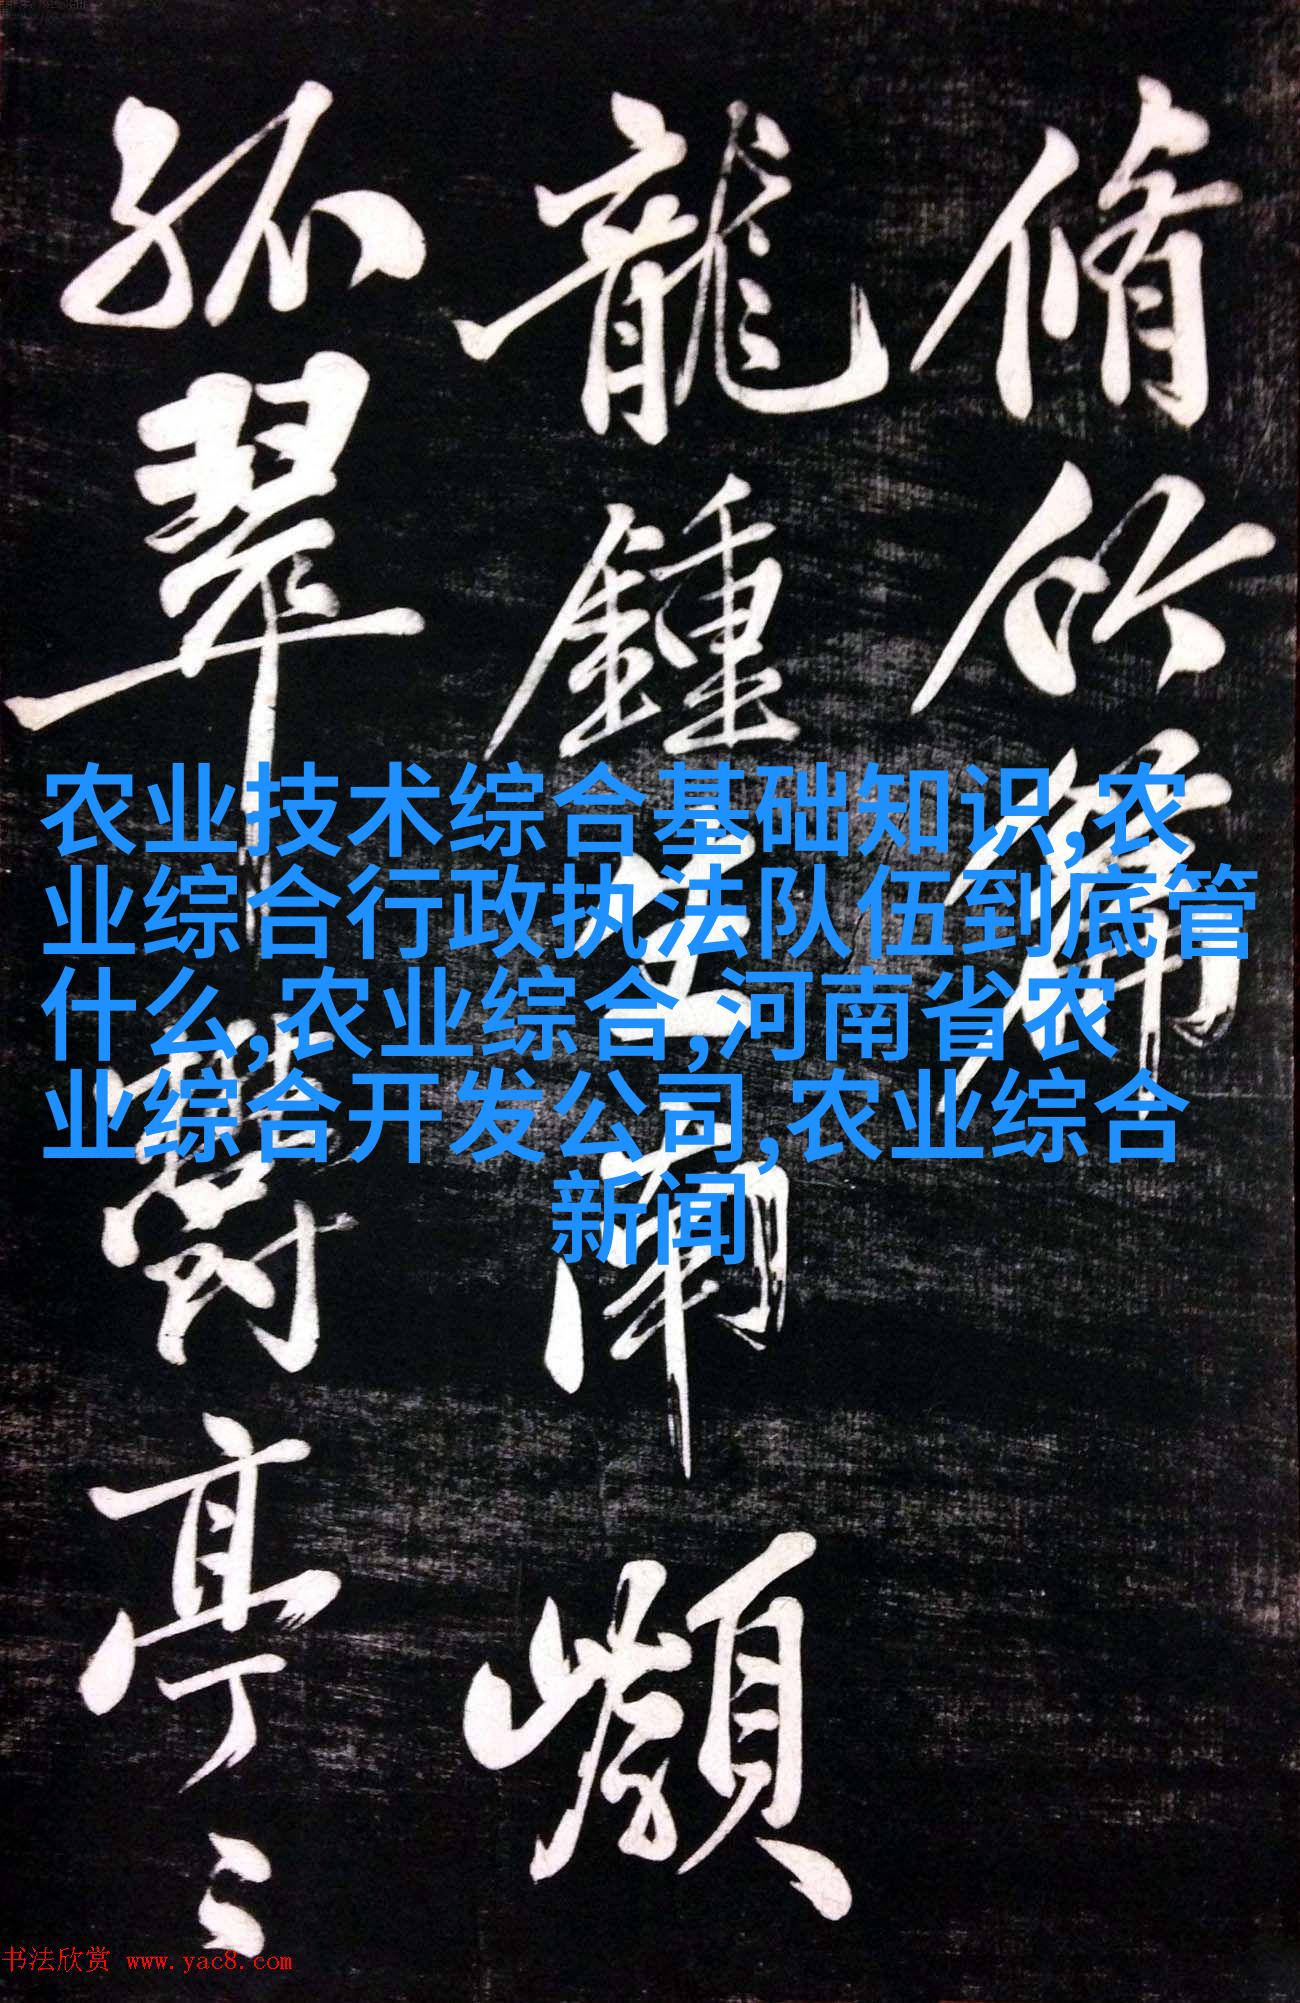 脩竹篇
龍鍾生南
孤翠鬱亭〻
农业技术综合基础知识,农
业综合行政执法队伍到底管
什么,农业综合,河南省农
业综合开发公司,农业综合
新闻
书法欣赏 www.yac8.com